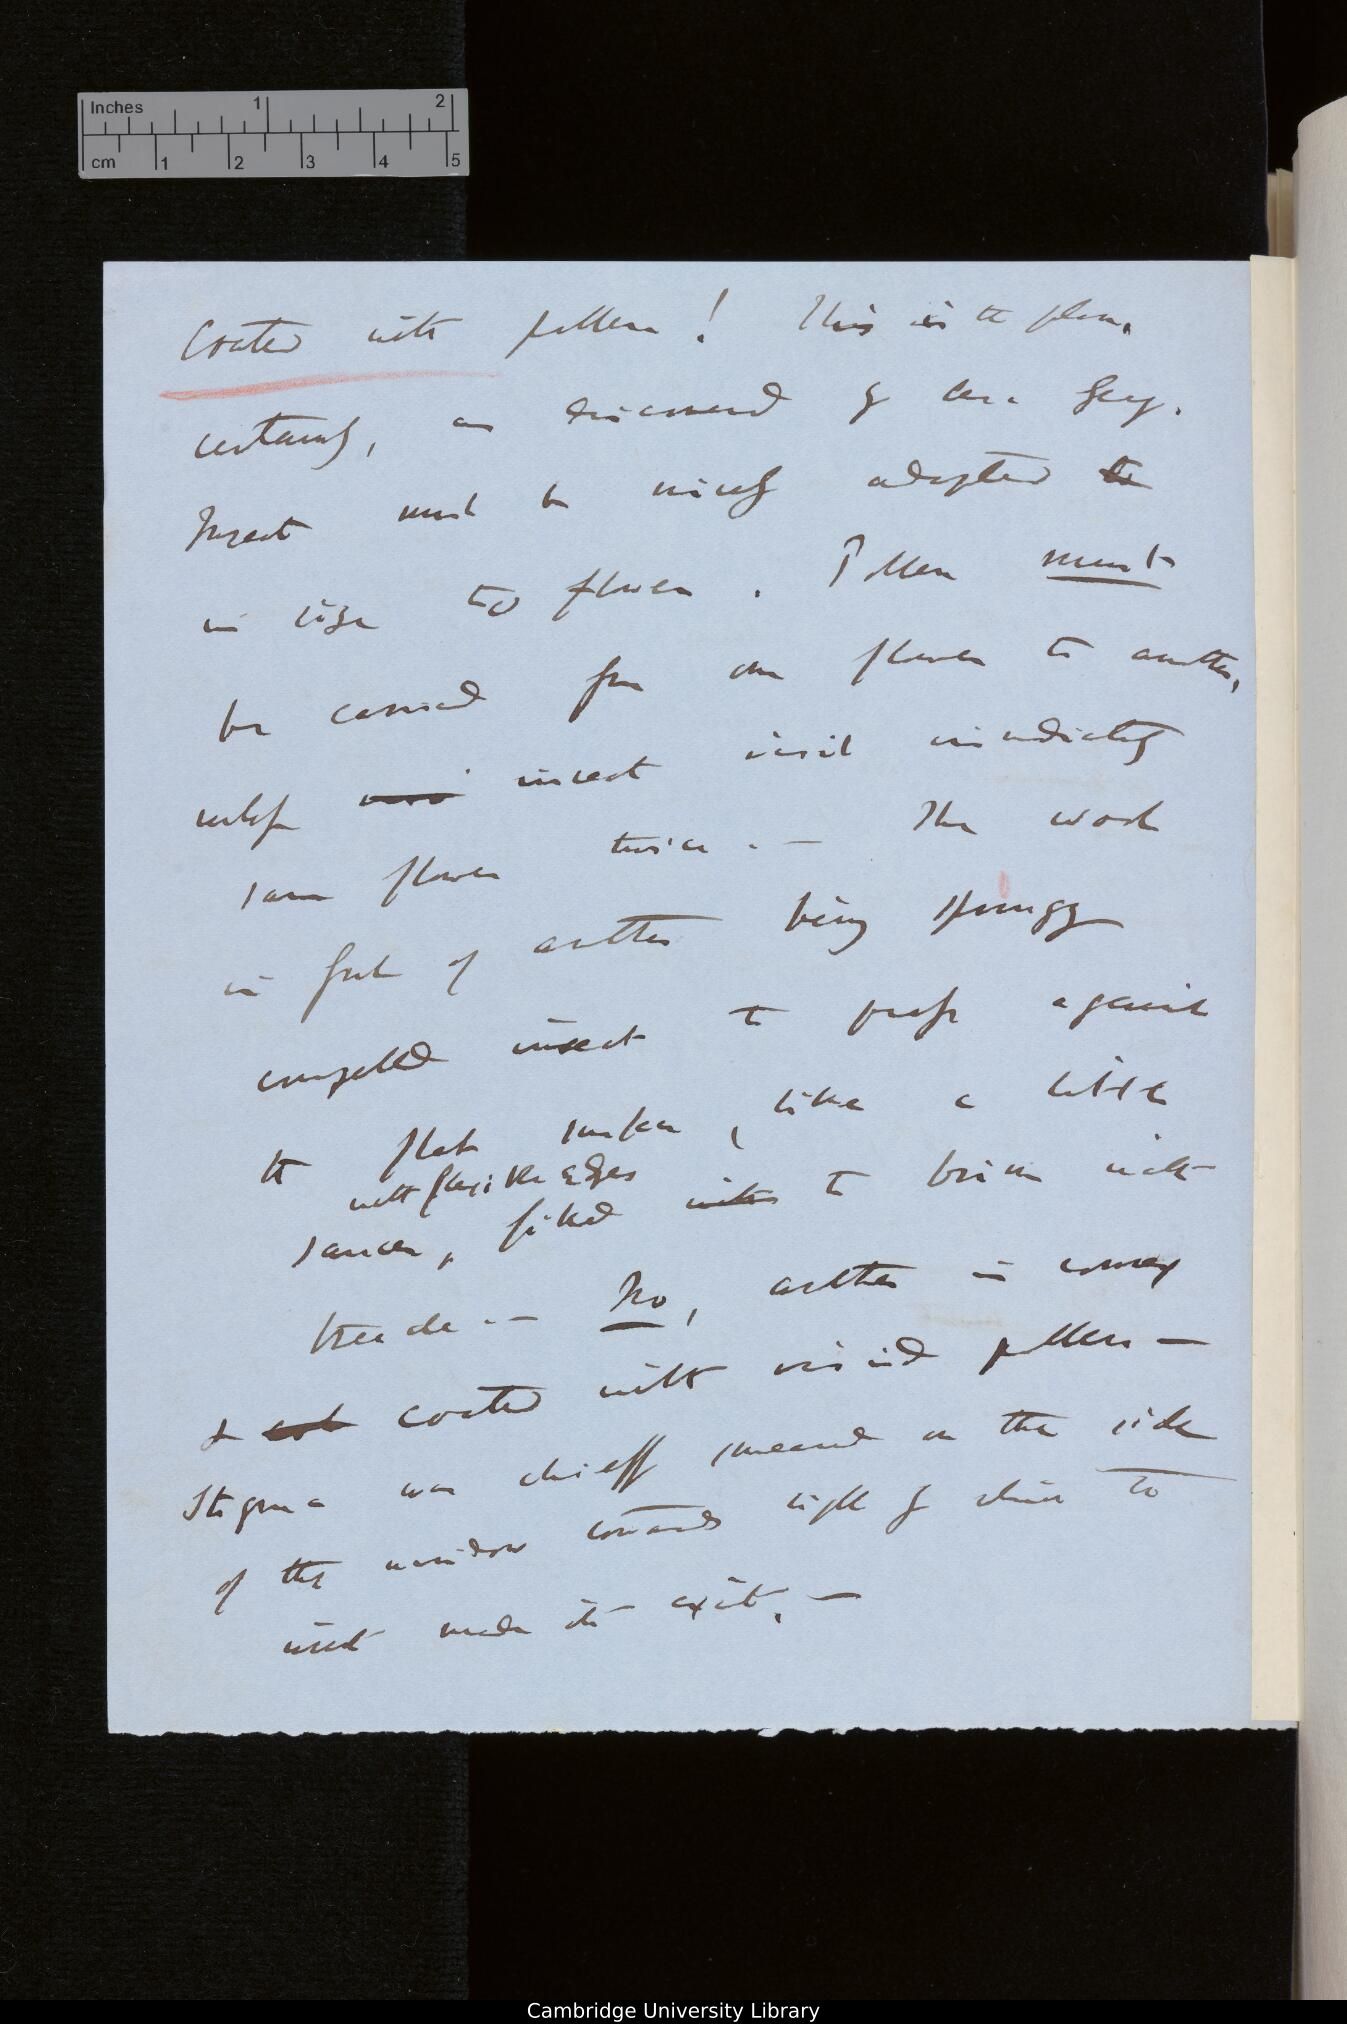 Inches 1 2
cm 1 2 3 4 5
Coated with pollen! This is the plan,
certainly, as discovered by Asa Gray.
Insect must be nicely adapted to
in size to flower. Pollen must
be carried from one flower to another,
unless insect visit immediately
same flower twice.— The work
in front of anther being springy
compelled insect to press against
the flat surface, like a little
with flexible edges
saucer, filled with to brim with
treacle.— No, anther is convex
& coated with viscid pollen—
Stigma was chiefly smeared on the side
of the window towards light by which
insect made its exit.—
Cambridge University Library